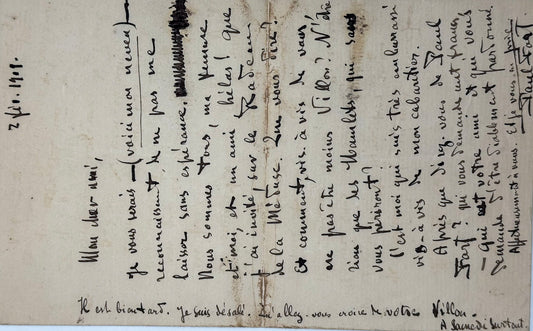 2 fév. 1909.
Mon cher ami,
Je vous serais — (voici mon neveu)
reconnaissant de ne pas me
laisser sans espérance.
Nous sommes tous, ma femme
et moi, et un ami — hélas! que
j'ai invité sur le Radeau
de la Méduse. Que vous dire?
Et comment, vis à vis de vous,
ne pas être moins Villon? N'être
rien que les Hamlets, qui sans
vous périront?
C'est moi qui suis très embarrassé
vis-à-vis de mon
Après que direz-vous de Paul
Fort? qui vous demande cent francs,
— qui est votre ami et que vous
demande d'être pardonné.
Affectueusement à vous. Et je vous en prie
Paul Fort
Il est bien tard. Je suis désolé. Qu'allez-vous croire de votre Villon.
A samedi surtout.